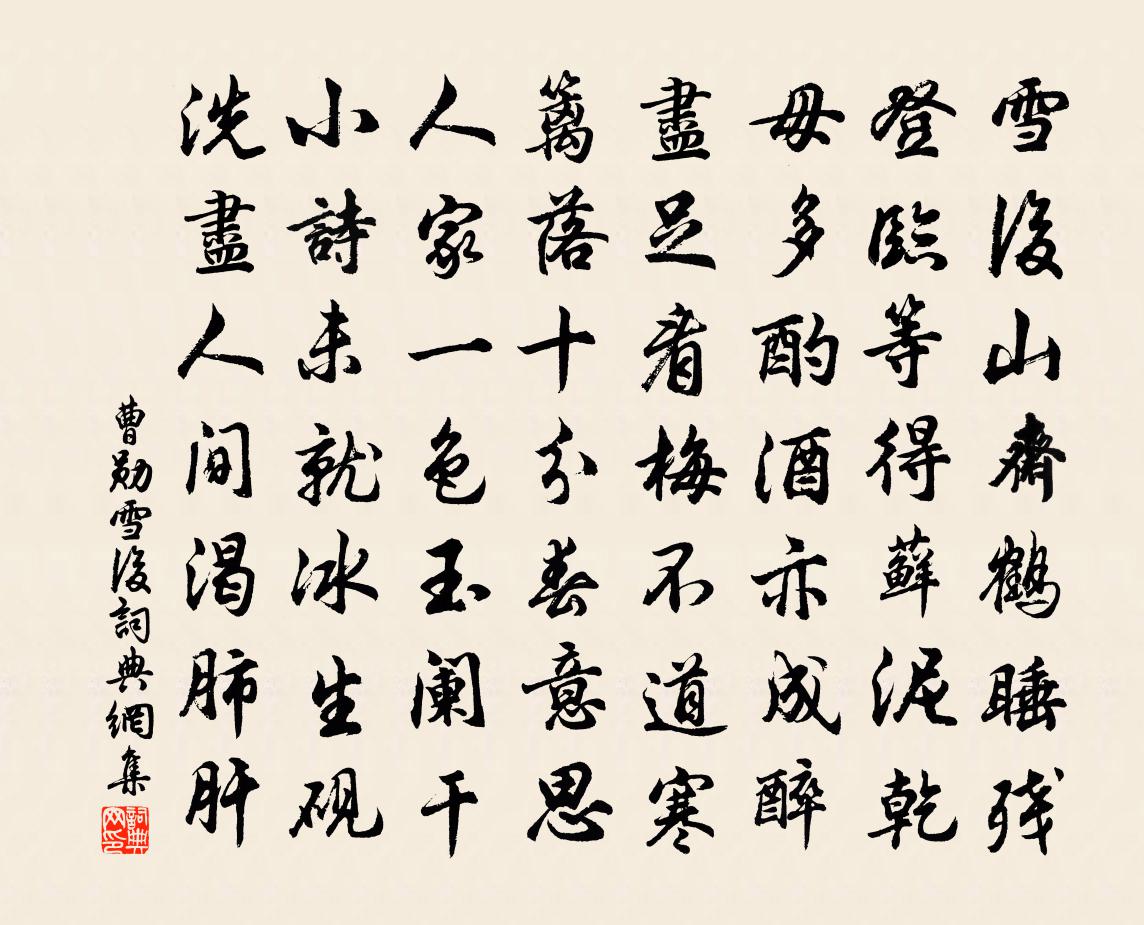 雪後山齋鶴睡殘
登臨等得蘚泥乾
毋多酌酒亦成醉
盡足看梅不道寒
籬落十分春意思
人家一色玉闌干
小詩未就冰生硯
洗盡人間渴肺肝
曹勛雪後詞典網集
詞典網印